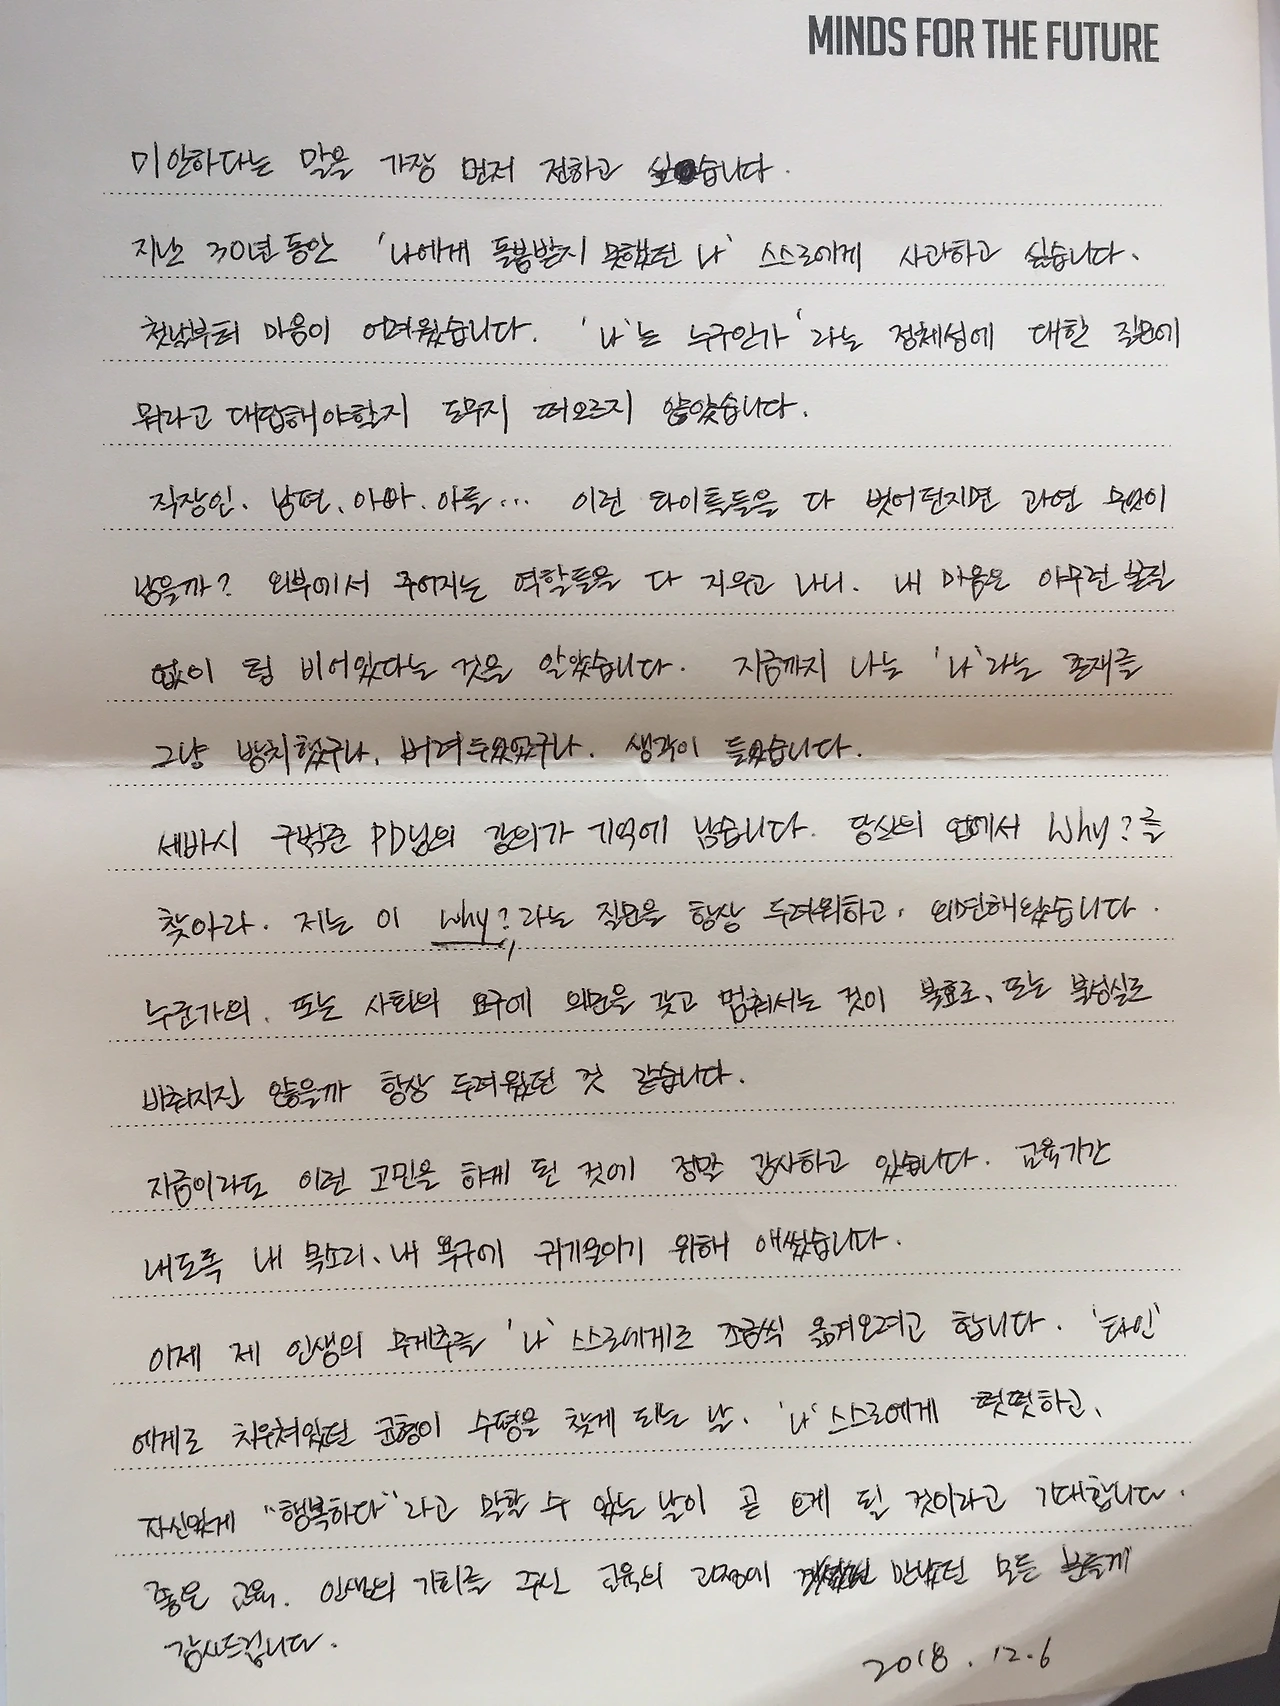 MINDS FOR THE FUTURE
미안하다는 말을 가장 먼저 전하고 싶습니다.
지난 30년동안 '나에게 돌봄받지 못했던 나' 스스로에게 사과하고 싶습니다.
첫날부터 마음이 어려웠습니다. '나'는 누구인가'라는 정체성에 대한 질문에
뭐라고 대답해야할지 도무지 떠오르지 않았습니다.
직장인, 남편, 아빠, 아들... 이런 타이틀들을 다 벗어던지면 과연 무엇이
남을까? 외부에서 주어지는 역할들을 다 지우고 나니. 내 마음은 아무런 본질
없이 텅 비어있다는 것을 알았습니다. 지금까지 나는 '나'라는 존재를
그냥 방치했구나, 버려두었었구나. 생각이 들었습니다.
세바시 구범준 PD님의 강의가 기억에 남습니다. 당신의 업에서 Why?를
찾아라. 저는 이 Why?라는 질문을 항상 두려워하고, 외면해왔습니다.
누군가의, 또는 사회의 요구에 의문을 갖고 멈춰서는 것이 불효로, 또는 불성실로
비춰지진 않을까 항상 두려웠던 것 같습니다.
지금이라도 이런 고민을 하게 된 것에 정말 감사하고 있습니다. 교육기간
내도록 내 목소리, 내 욕구에 귀기울이기 위해 애썼습니다.
이제 제 인생의 무게추를 '나' 스스로에게로 조금씩 옮겨오려고 합니다. '타인'
에게로 치우쳐있던 균형이 수평을 찾게 되는 날, '나' 스스로에게 떳떳하고,
자신있게 "행복하다"라고 말할 수 있는 날이 곧 오게 될 것이라고 기대합니다.
좋은 교육, 인생의 기회를 주신 교육의 과정에 만났던 모든 분들께
감사드립니다.
2018.12.6